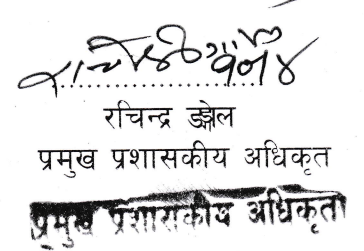 रचिन्द्र डङ्गेल
प्रमुख प्रशासकीय अधिकृत
प्रमुख प्रशासकीय अधिकृत